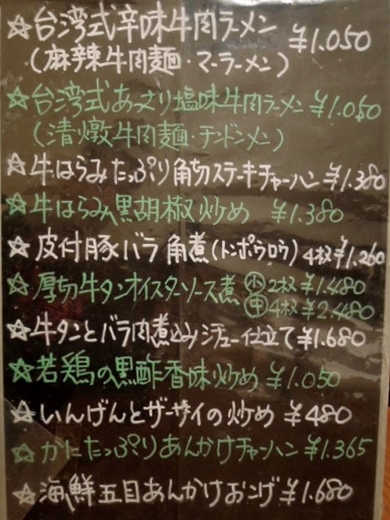 ☆台湾式辛味牛肉ラーメン ¥1.050
(麻辣牛肉麺・マーラーメン)
☆台湾式あっさり塩味牛肉ラーメン ¥1.050
(清燉牛肉麺・チンドンメン)
☆牛はらみたっぷり角切ステーキチャーハン ¥1.380
☆牛はらみ黒胡椒炒め ¥1.380
☆皮付豚バラ角煮(トンポウロウ) 4枚¥1.260
☆厚切牛タンオイスターソース煮 小2枚¥1.480
中4枚¥2.480
☆牛タンとバラ肉煮込みシチュー仕立て ¥1.680
☆若鶏の黒酢香味炒め ¥1.050
☆いんげんとザーサイの炒め ¥480
☆かにたっぷりあんかけチャーハン ¥1.365
☆海鮮五目あんかけおこげ ¥1.680